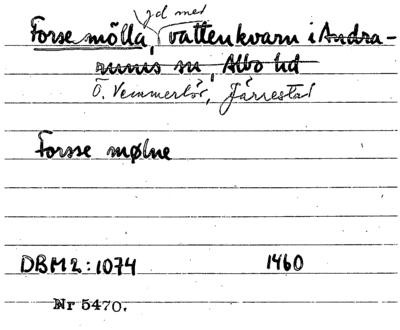 jd med
Forse mölla, vattenkvarn i Andra-
rums sn, Albo hd
Ö. Vemmerlöv, Järrestad
Forsse mølne
DBM2:1074 1460
Nr 5470.